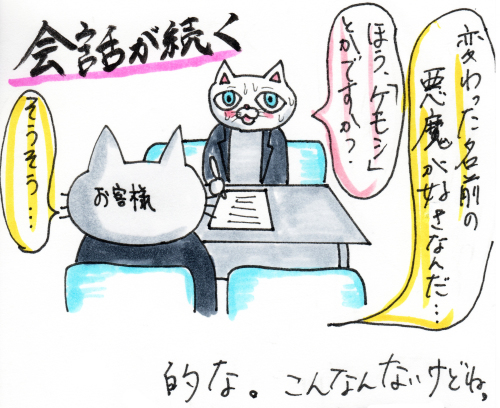 会話が続く
変わった名前の
悪魔が好きなんだ…
ほう、「ケモシ」
とかですか?
そうそう…
お客様
的な。こんなんないけどね。